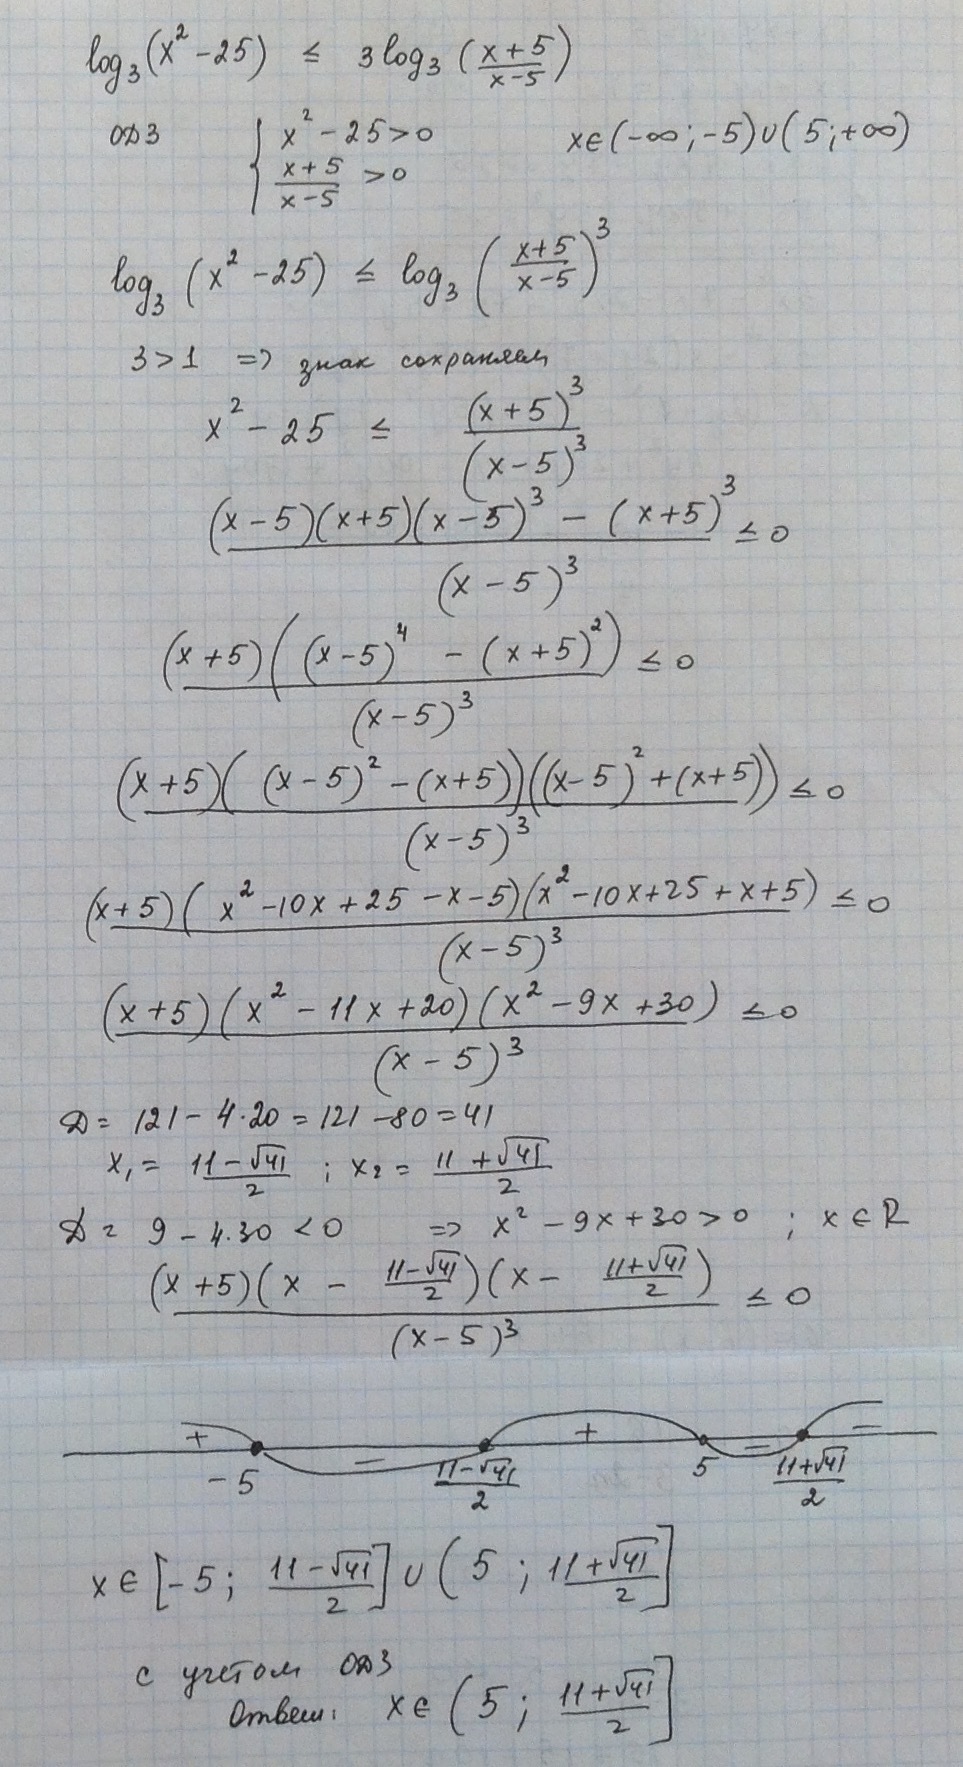 log₃(x² - 25) ≤ 3log₃(x+5 / x-5)
ОДЗ { x² - 25 > 0 x ∈ (-∞; -5) ∪ (5; +∞)
x+5 / x-5 > 0
log₃(x² - 25) ≤ log₃(x+5 / x-5)³
3 > 1 => знак сохраняем
x² - 25 ≤ (x+5)³ / (x-5)³
(x-5)(x+5)(x-5)³ - (x+5)³ / (x-5)³ ≤ 0
(x+5)((x-5)⁴ - (x+5)²) / (x-5)³ ≤ 0
(x+5)((x-5)² - (x+5))((x-5)² + (x+5)) / (x-5)³ ≤ 0
(x+5)(x² - 10x + 25 - x - 5)(x² - 10x + 25 + x + 5) / (x-5)³ ≤ 0
(x+5)(x² - 11x + 20)(x² - 9x + 30) / (x-5)³ ≤ 0
Д = 121 - 4·20 = 121 - 80 = 41
x₁ = 11-√41 / 2 ; x₂ = 11+√41 / 2
Д = 9 - 4·30 < 0 => x² - 9x + 30 > 0 ; x ∈ R
(x+5)(x - 11-√41 / 2)(x - 11+√41 / 2) / (x-5)³ ≤ 0
+ - + - -
-5 11-√41 / 2 5 11+√41 / 2
x ∈ [-5; 11-√41 / 2] ∪ (5; 11+√41 / 2]
с учетом ОДЗ
Ответ: x ∈ (5; 11+√41 / 2]